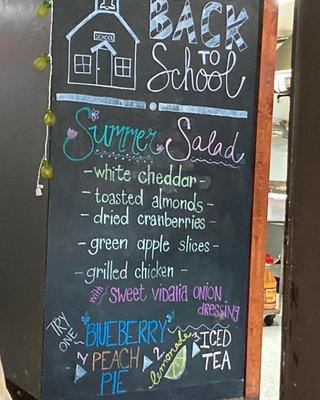 BACK
TO
School
SCHOOL
Summer Salad
-white cheddar-
-toasted almonds-
-dried cranberries-
-green apple slices-
-grilled chicken-
with Sweet Vidalia Onion
dressing
TRY
ONE
BLUEBERRY
PEACH
PIE
lemonade
ICED
TEA